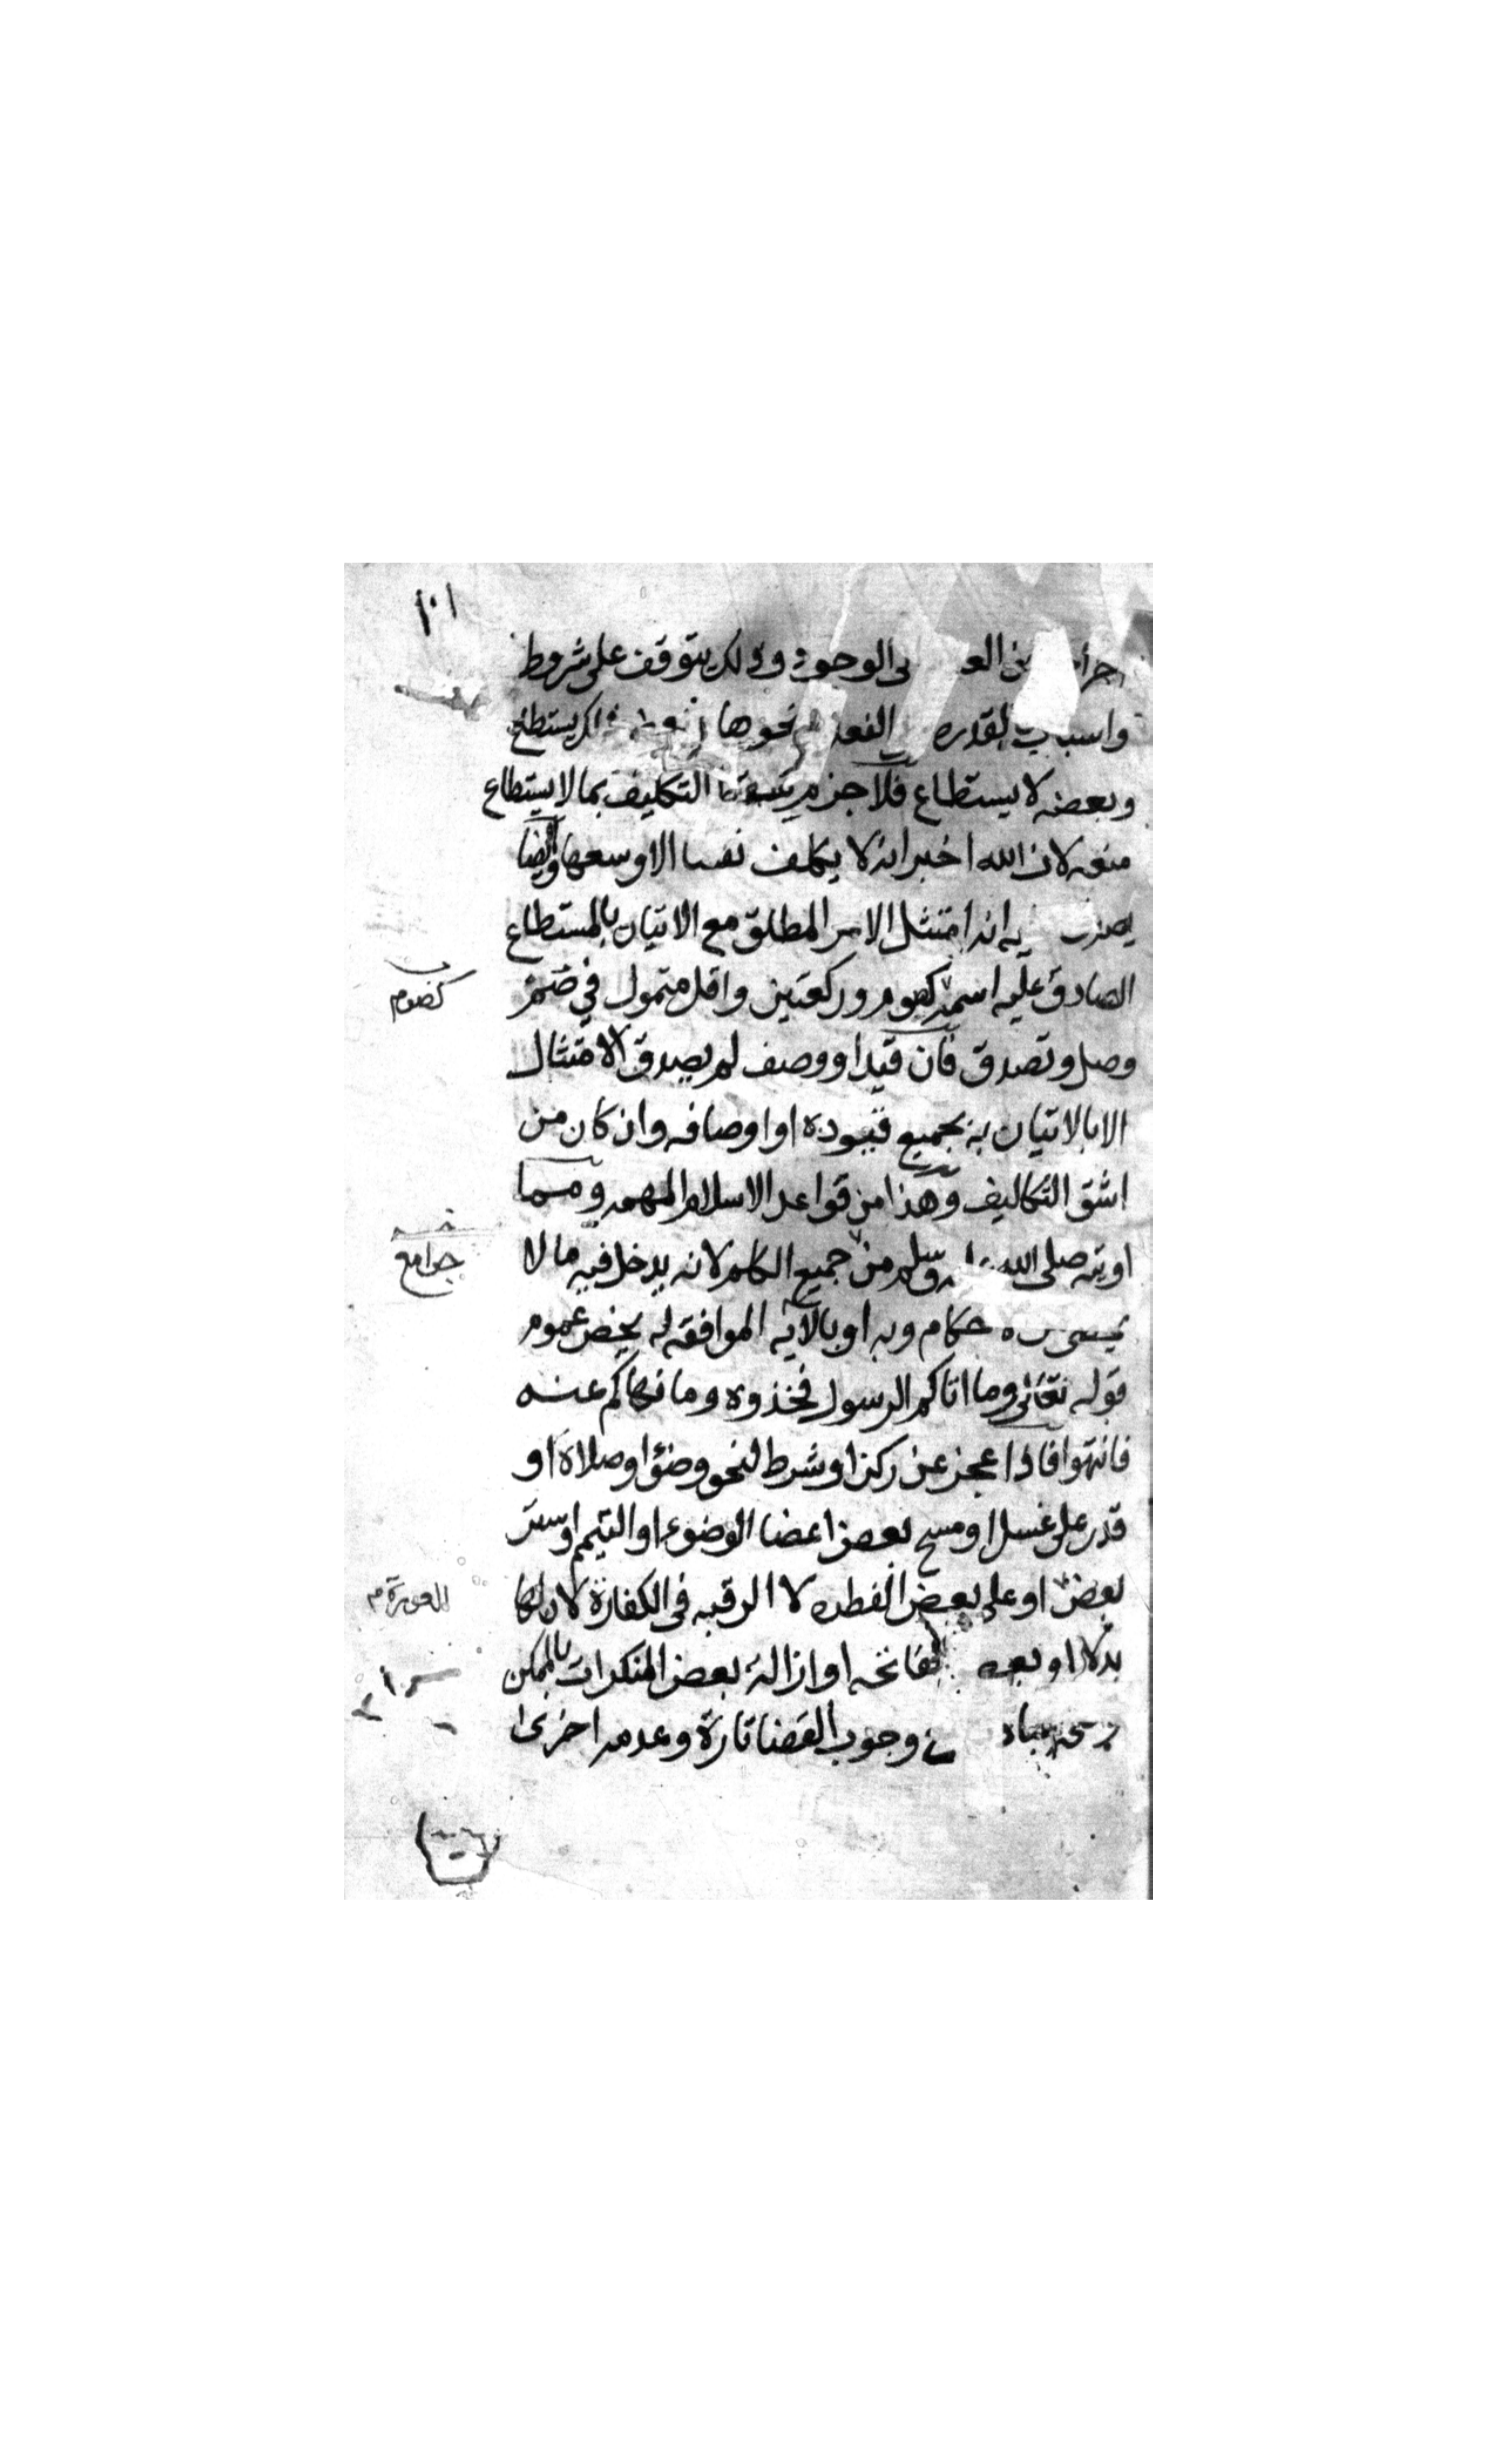 من الوجود وذلك يتوقف على شروط
واسباب القدره الفعل ونحوها يستطاع
وبعضه لا يستطاع فلا جزم يسقط التكليف بما لا يستطاع
منه لان الله اخبر انه لا يكلف نفسا الا وسعها وايضا
انه امتثل الامر المطلق مع الاتيان بالمستطاع
الصادق عليه اسمه كصوم وركعتين واقل متمول في صم
كصوم
وصل وتصدق فان قيد او وصف لم يصدق الامتثال
الا بالاتيان به بجميع قيوده او اوصافه وان كان من
اشق التكاليف وهذا من قواعد الاسلام المهمه ومما
اوتيه صلى الله وسلم من جميع الكلم لانه يدخل فيه ما لا
جوامع
وبه او بالايه الموافقه له يخص عموم
قوله تعالى وما اتاكم الرسول فخذوه وما نهاكم عنه
فانتهوا فاذا عجز عن ركن او شرط لنحو وضؤ او صلاة او
قدر على غسل او مسح بعض اعضا الوضوء او التيمم او ستر
بعض او على بعض الفطره لا الرقبه في الكفارة لان لها
العورة م
بدلا او الفاتحه او ازالة بعض المنكرات بالممكن
وجوب القضا تارة وعدمه اخرى